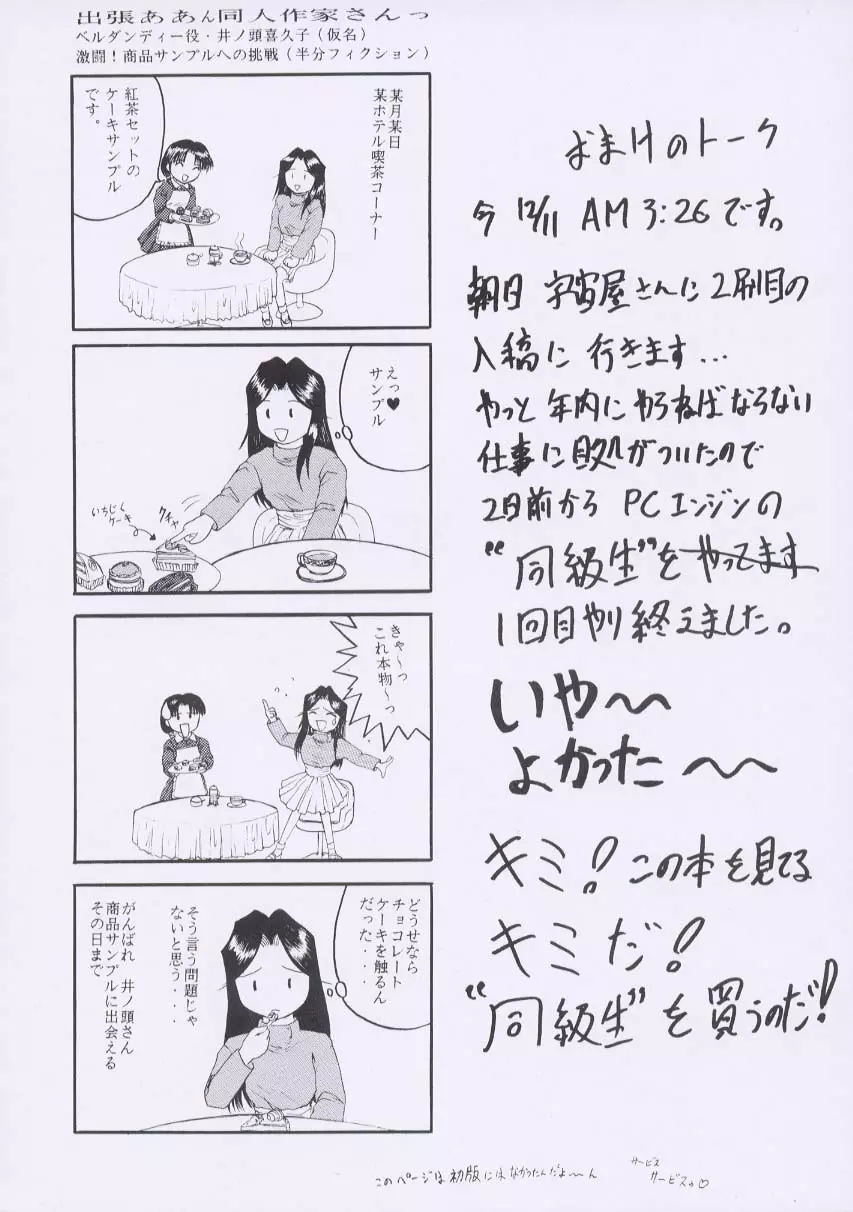 出張ああん同人作家さんっ
ベルダンディー役・井ノ頭喜久子（仮名）
激闘！商品サンプルへの挑戦（半分フィクション）
某月某日
某ホテル喫茶コーナー
紅茶セットの
ケーキサンプル
です。
えっ♥
サンプル
クチャ
いちじく
ケーキ
きゃ～っ
これ本物～っ
どうせなら
チョコレート
ケーキを触るん
だった・・
そう言う問題じゃ
ないと思う・・・
がんばれ 井ノ頭さん
商品サンプルに出会える
その日まで
おまけのトーク
今 12/11 AM 3:26です。
朝日 宇宙屋さんに2刷目の
入稿に行きます…
やっと年内にやらねばならない
仕事に目処がついたので
2日前から PCエンジンの
“同級生”をやってます
1回目やり終えました。
いや～～
よかった～～
キミ！この本を見てる
キミだ！
“同級生”を買うのだ！
このページは初版にはなかったんだよ～ん
サービス
サービスっ♡